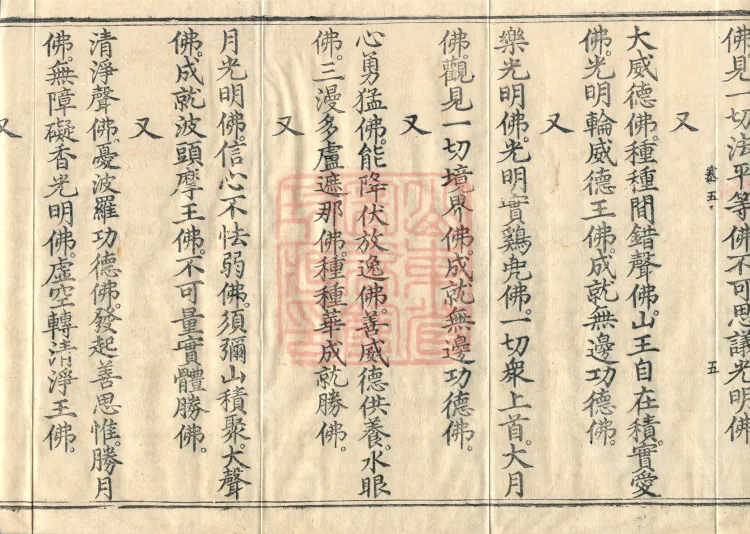 佛。見一切法平等佛。不可思議光明佛
巻五 五
又
大威德佛。種種間錯聲佛。山王自在積。實愛
佛。光明輪威德王佛。成就無邊功德佛。
又
樂光明佛。光明實鷄兜佛。一切衆上首。大月
佛。觀見一切境界佛。成就無邊功德佛。
又
心勇猛佛。能降伏放逸佛。善威德供養。水眼
佛。三漫多盧遮那佛。種種華成就勝佛。
又
月光明佛。信心不怯弱佛。須彌山積聚。大聲
佛。成就波頭摩王佛。不可量實體勝佛。
又
清淨聲佛。憂波羅功德佛。發起善思惟。勝月
佛。無障礙香光明佛。虛空轉清淨王佛。
又